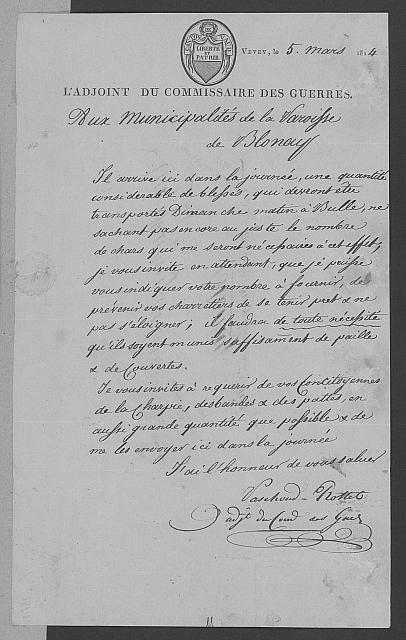 CANTON DE VAUD
LIBERTÉ
ET
PATRIE.
Vevey, le 5. mars 1814
L'ADJOINT DU COMMISSAIRE DES GUERRES.
Aux Municipalités de la Paroisse
de Blonay
Il arrive ici dans la journée, une quantité
considérable de blessés, qui devront etre
transportés Dimanche matin à Bulle, ne
sachant pas encore au juste le nombre
de chars qui me seront nécessaires à cet effet,
je vous invite en attendant, que je puisse
vous indiquer votre nombre à fournir, de
prévenir vos charretiers de se tenir pret & ne
pas s'eloigner; il faudra de toute nécessité
qu'ils soyent munis suffisament de paille
& de Couvertes.
Je vous invites à requerir de vos Concitoyennes
de la Charpie, des bandes & des pattes, en
aussi grande quantité que possible & de
me les envoyer ici dans la journée
J'ai l'honneur de vous saluer
adjt du Com des Guer